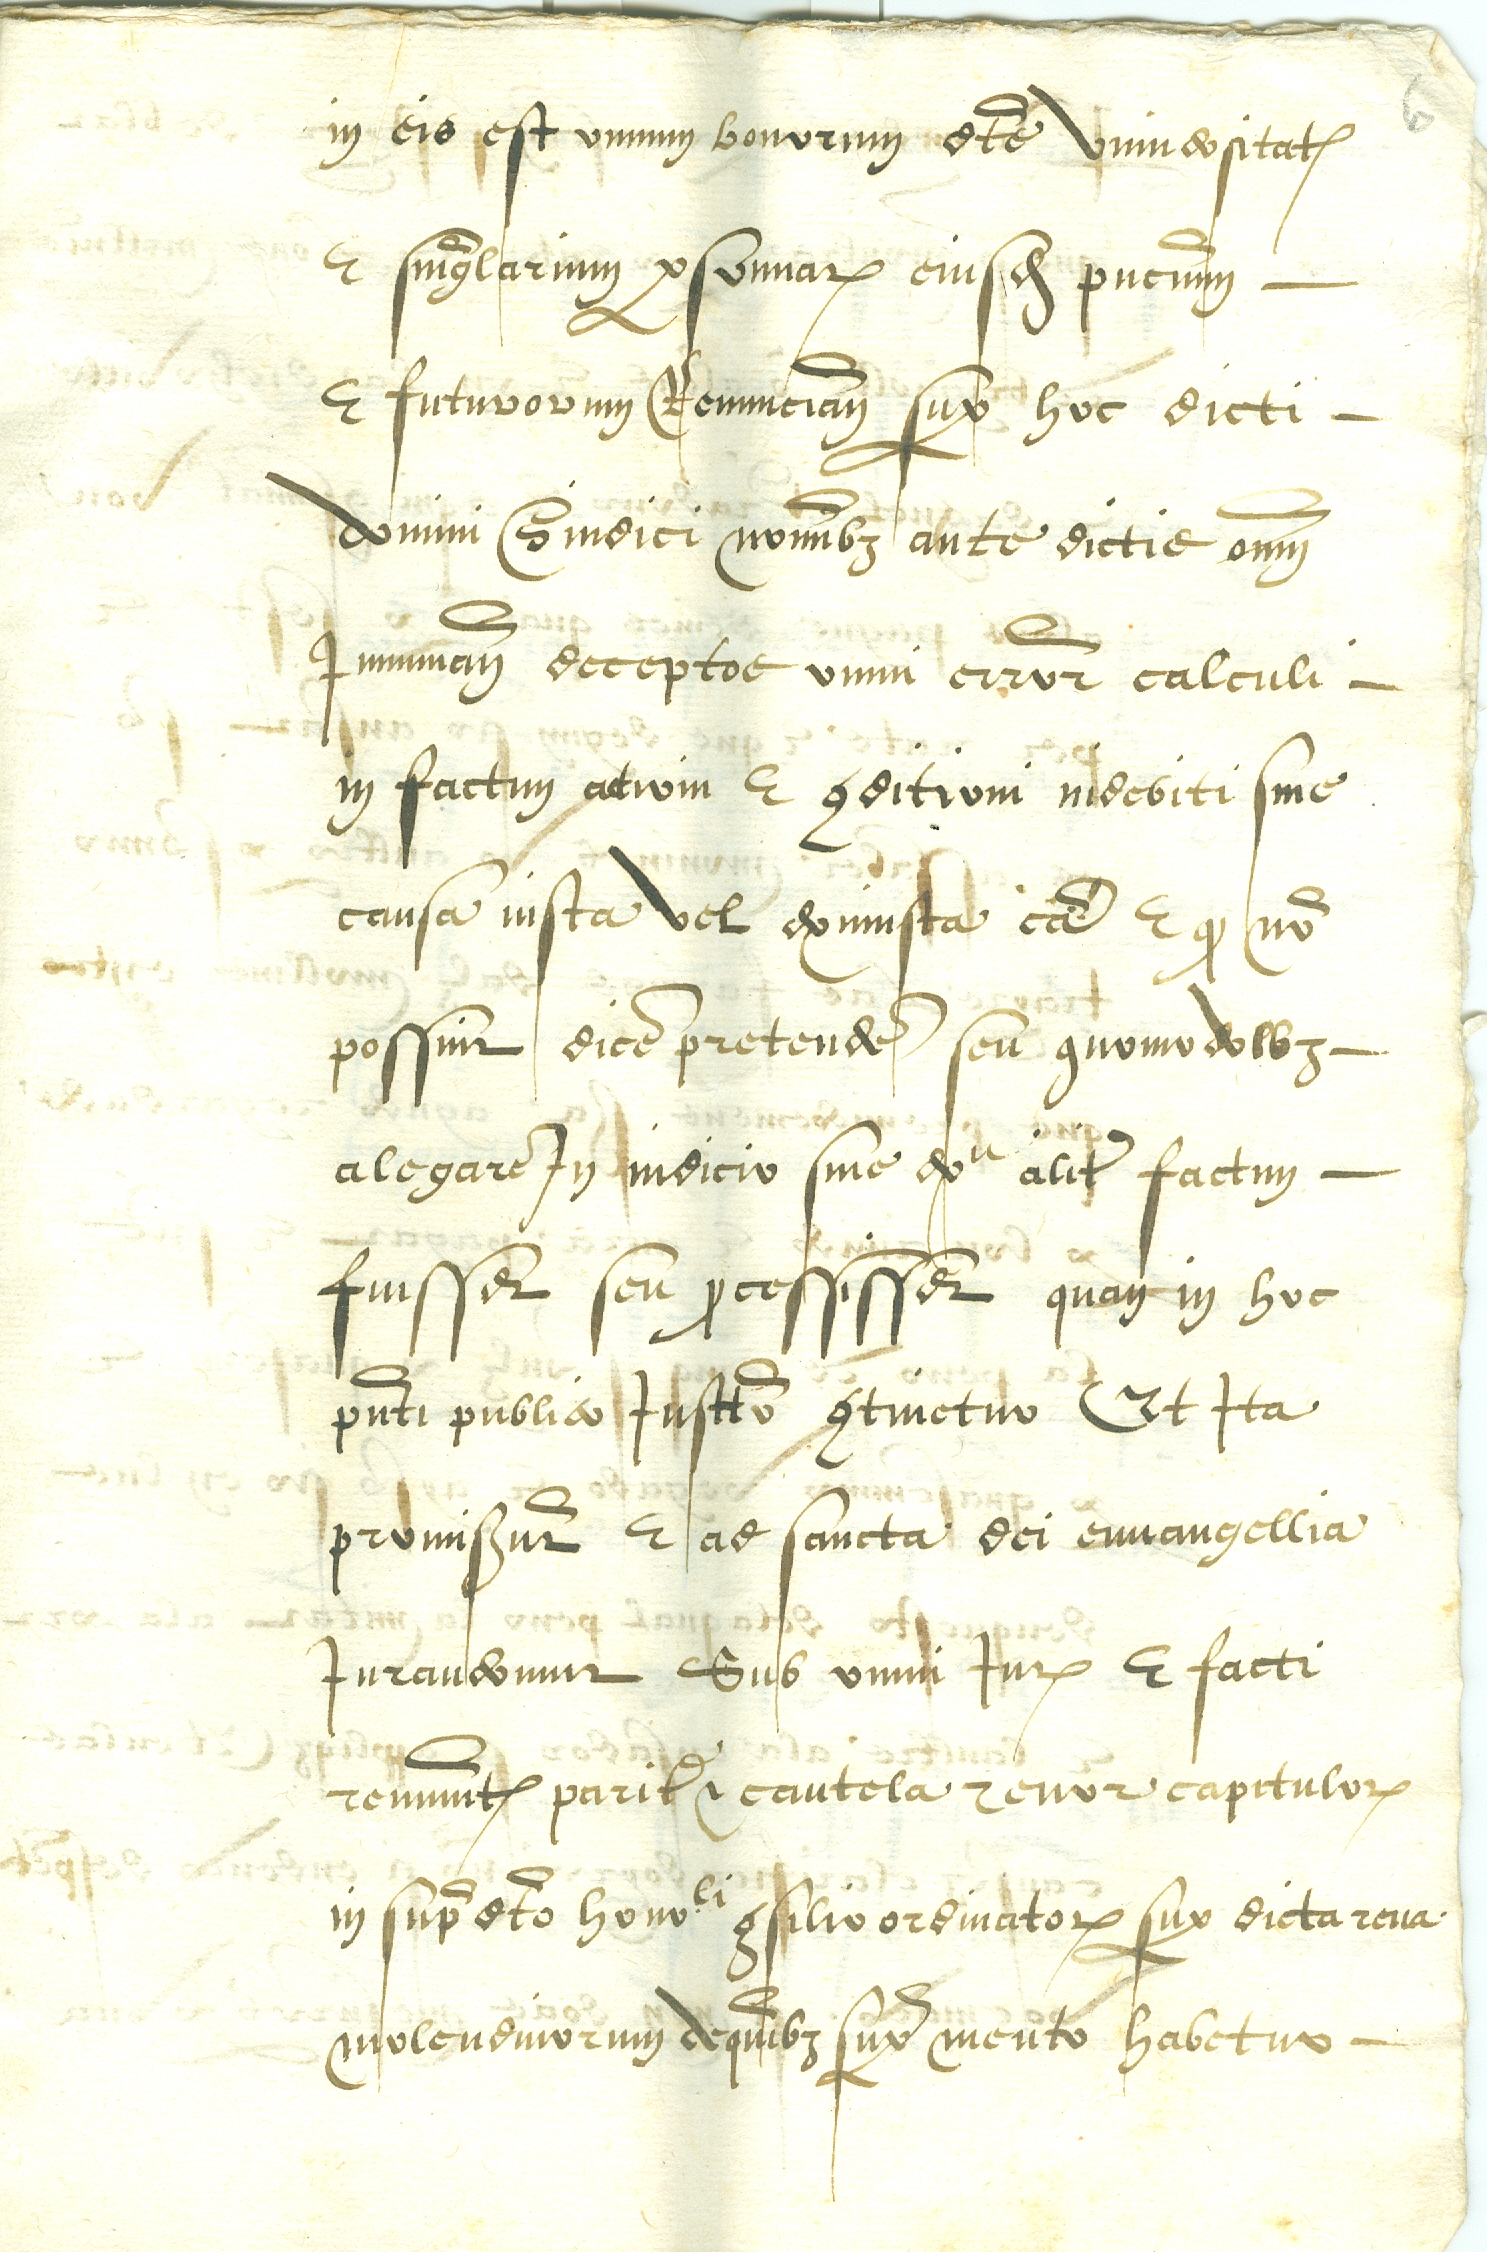 in eis est omnium bonorum dte Universitatis
& singularium personnarum eiusdem pñcium
& futurorum Renunciañ super hoc dicti
domini Sindici nominibz ante dictis omni
deceptos omni errori calculi
in factum action & conditioni indebiti sine
causa iusta vel ex iniusta causa & pro non
possint dicere pretendere seu quomodolibz
alegare In iudicio sive extra aliter factum
fuisset seu processisset quam in hoc
pñti publico Instto continetur Et Ita
promiserunt & ad sancta dei euuangellia
Jurauerunt Sub omni Juris & facti
renuntis pariter & cautela Tenor capitulorum
in supra dto honorli consilio ordinatorum super dicta reua
molendinorum de quibz supra mentio habetur
6